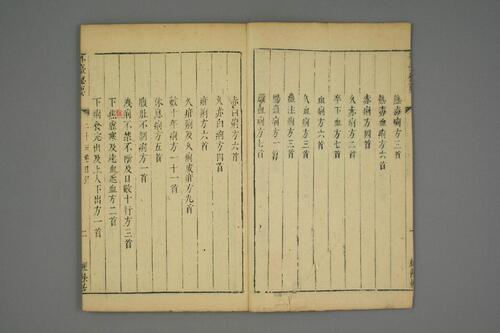 熱毒痢方三首
熱毒血痢方六首
赤痢方四首
久赤痢方二首
卒下血方七首
血痢方六首
久血痢方三首
蠱注痢方三首
腸蠱痢方一首
膿血痢方七首
赤白痢方六首
久赤白痢方四首
疳痢方六首
久疳痢及久痢成疳方九首
數十年痢方一十一首
休息痢方五首
腹肚不調痢方一首
洩痢不禁不斷及日數十行方三首
下焦虛寒及遠血近血方二首
下痢食完出及上入下出方一首
外臺秘要
二十五卷目錄
二
經餘居